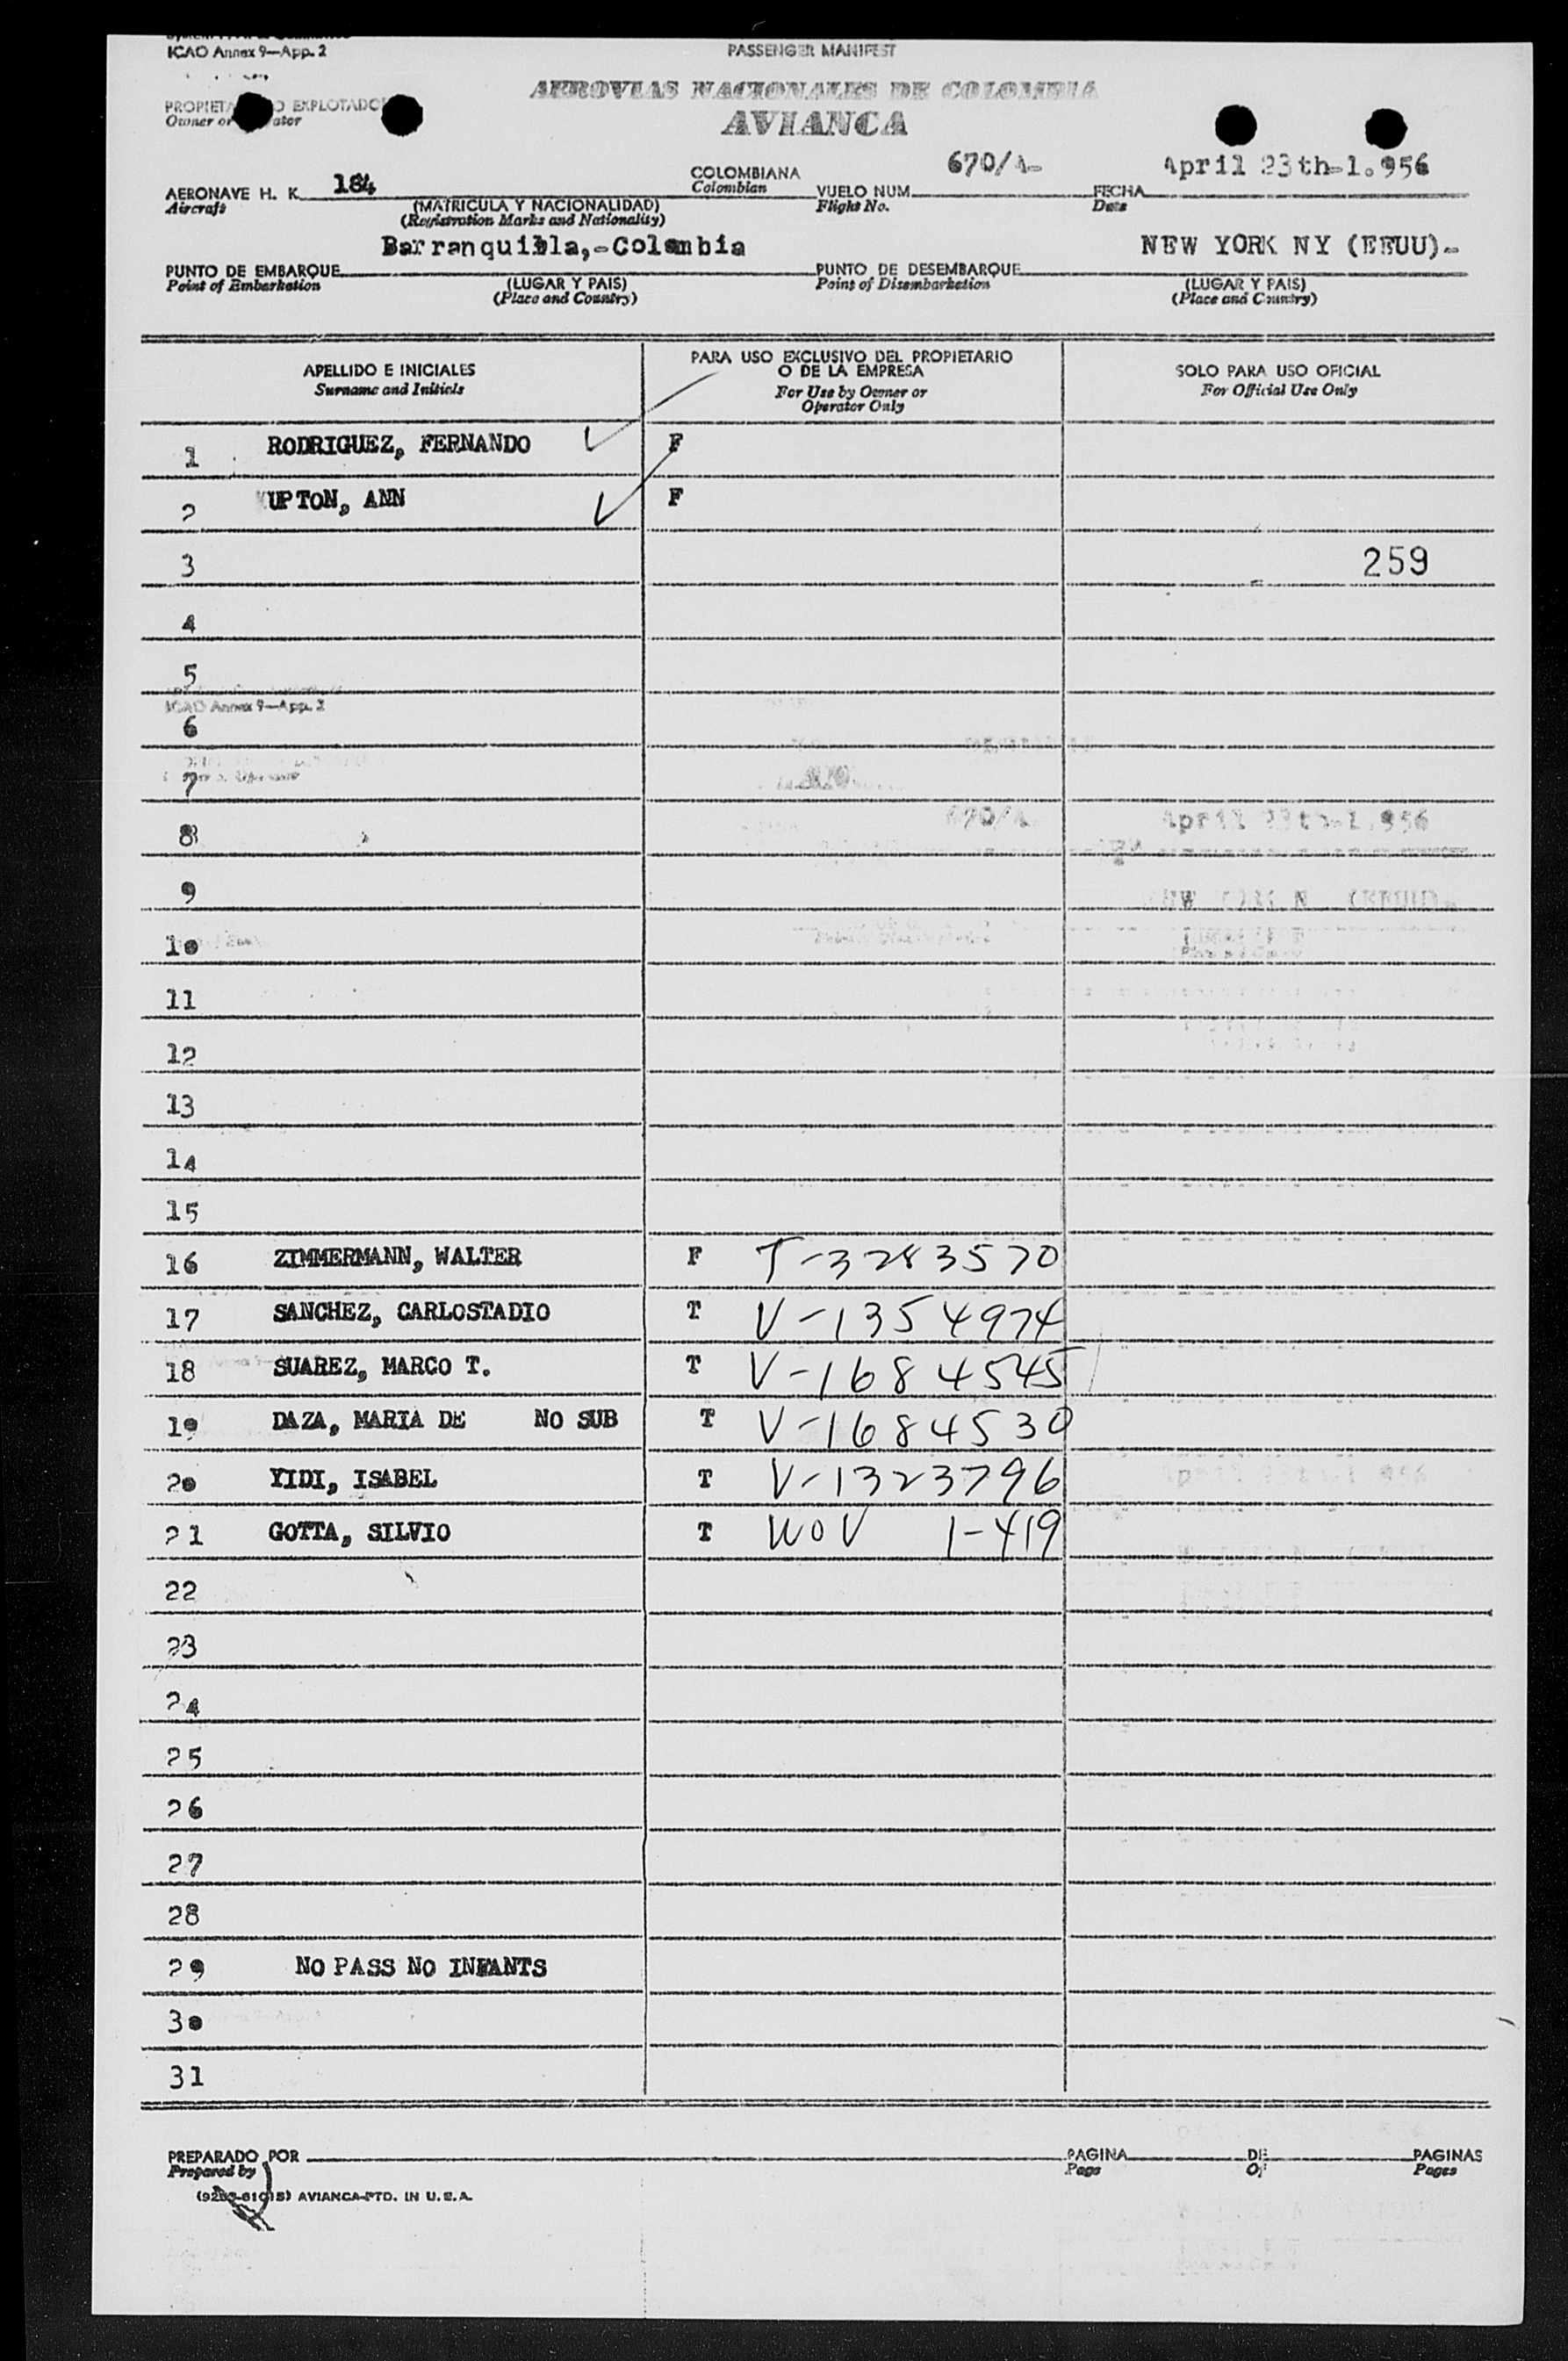 ICAO Annex 9—App. 2
PASSENGER MANIFEST
AEROVIAS NACIONALES DE COLOMBIA
AVIANCA
PROPIETA O EXPLOTADO
Owner or ator
AERONAVE H. K. 184 COLOMBIANA VUELO NUM. 670/A- FECHA April 23th-1.956
Aircraft Colombian Flight No. Date
(MATRICULA Y NACIONALIDAD)
(Registration Marks and Nationality)
PUNTO DE EMBARQUE Barranquilla,-Colombia PUNTO DE DESEMBARQUE NEW YORK NY (EEUU)-
Point of Embarkation (LUGAR Y PAIS) Point of Disembarkation (LUGAR Y PAIS)
(Place and Country) (Place and Country)
APELLIDO E INICIALES PARA USO EXCLUSIVO DEL PROPIETARIO O DE LA EMPRESA SOLO PARA USO OFICIAL
Surname and Initials For Use by Owner or Operator Only For Official Use Only
1 RODRIGUEZ, FERNANDO F
2 UPTON, ANN F
3 259
4
5
6 ICAO Annex 9—App. 2
7
8 670/A April 23th-1.956
9
10
11
12
13
14
15
16 ZIMMERMANN, WALTER F T-3283570
17 SANCHEZ, CARLOSTADIO T V-1354974
18 SUAREZ, MARCO T. T V-1684545
19 DAZA, MARIA DE NO SUB T V-1684530
20 YIDI, ISABEL T V-1323796
21 GOTTA, SILVIO T WOV 1-419
22
23
24
25
26
27
28
29 NO PASS NO INFANTS
30
31
PREPARADO POR PAGINA DE PAGINAS
Prepared by Page Of Pages
AVIANCA-PTD. IN U.S.A.